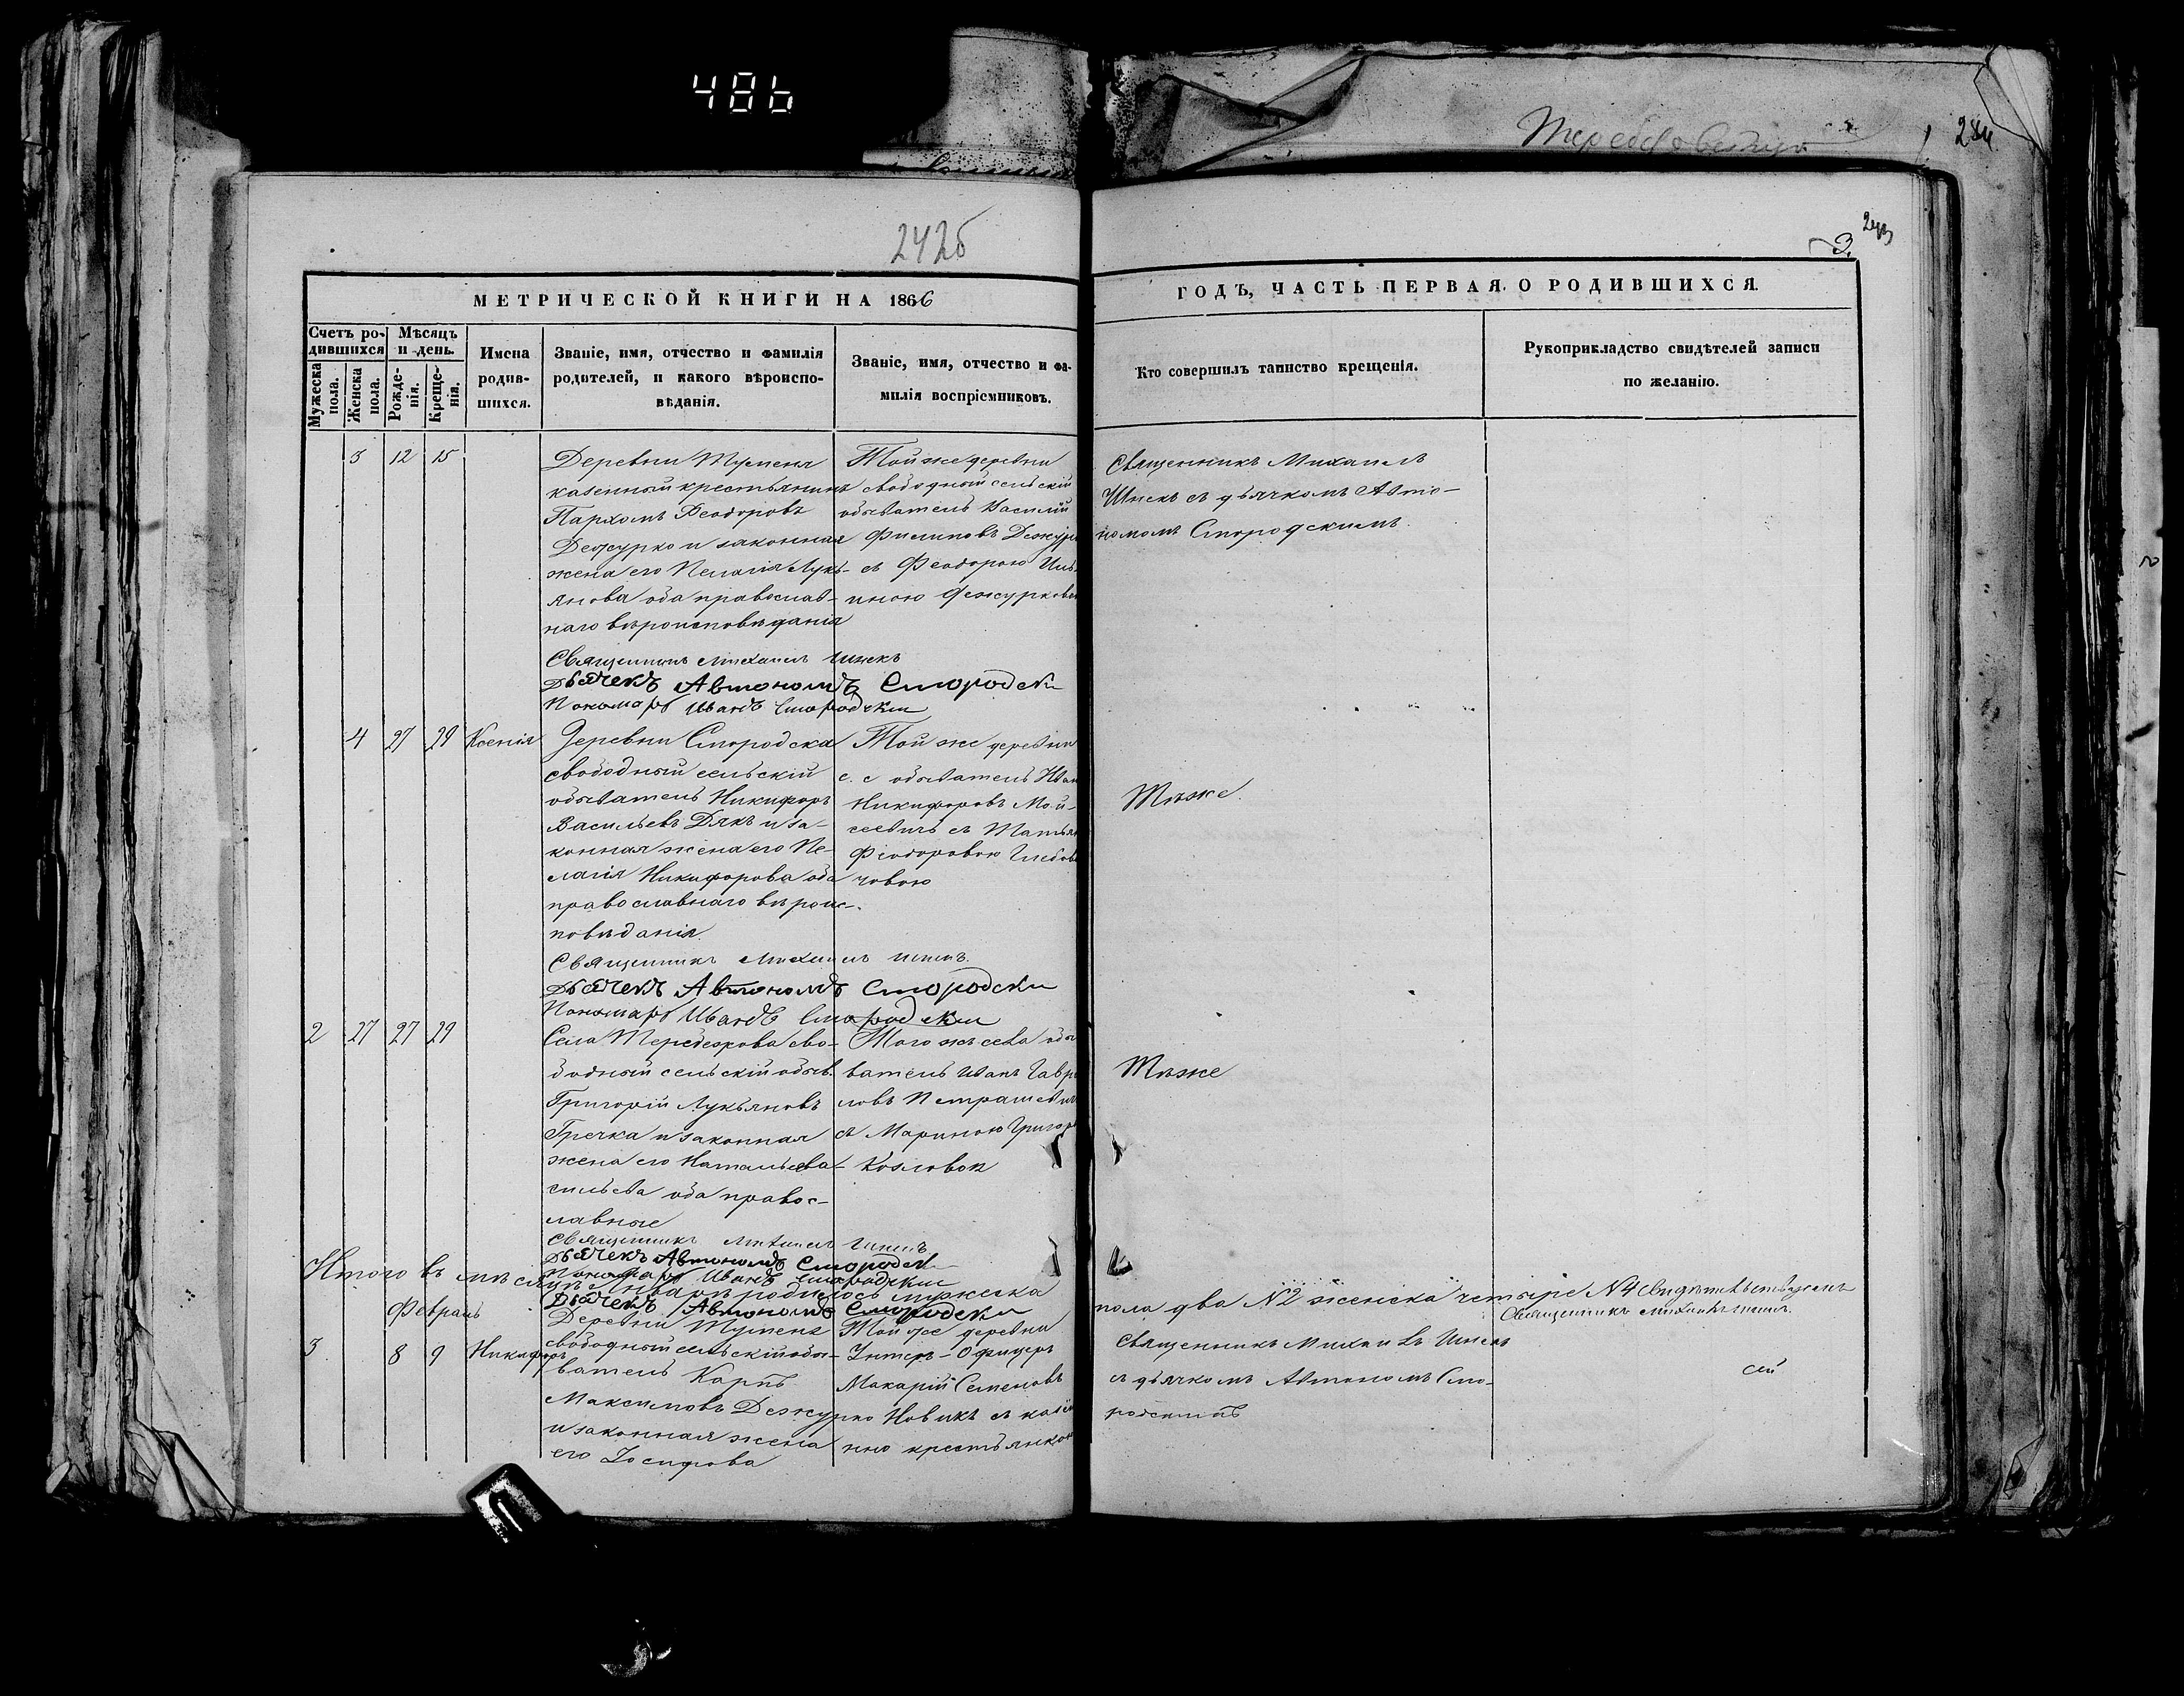 486
284
242б
243
3.
МЕТРИЧЕСКОЙ КНИГИ НА 1866
ГОДЪ, ЧАСТЬ ПЕРВАЯ. О РОДИВШИХСЯ.
Счетъ ро-
дившихся
Мужеска
пола.
Женска
пола.
Мѣсяцъ
и день.
Рожде-
нія.
Креще-
нія.
Имена
родив-
шихся.
Званіе, имя, отчество и фамилія
родителей, и какого вѣроиспо-
вѣданія.
Званіе, имя, отчество и фа-
милія воспріемниковъ.
Кто совершилъ таинство крещенія.
Рукоприкладство свидѣтелей записи
по желанію.
3 12 15
Деревни
казенный крестьянинъ
Пархомъ Феодоровъ
Дежурко и законная
жена его Пелагія Лукь-
янова оба православ-
наго вѣроисповѣданія
Той же деревни
свободный сельскій
обыватель Василій
Филиповъ
съ Феодорою
Священникъ Михаилъ
съ дьячкомъ Авто-
номомъ Смородскимъ.
Священникъ Михаилъ
Дьячекъ Автономъ Смородски
Пономарь Иванъ Смородски
4 27 29 Ксенія
Деревни Смородска
свободный сельскій
обыватель Никифоръ
Васильевъ Дякъ и за-
конная жена его Пе-
лагія Никифорова оба
православнаго вѣроис-
повѣданія
Той же деревни
с. с обыватель Иван
Никифоровъ Мой-
сеевичъ съ
Феодоровою
човою
Тѣже.
Священникъ Михаилъ
Дьячекъ Автономъ Смородски
Пономарь Иванъ Смородски
2 27 27 29
Села сво-
бодный сельскій обыв.
Григорій Лукьяновъ
Гречка и законная
жена его Наталья Ва-
сильева оба правос-
лавные
Того же села обы
ватель Иванъ Гавр
ловъ
съ Мариною Григор
Козловой
Тѣже
Священникъ Михаилъ
Дьячекъ Автономъ Смородски
Пономарь Иванъ Смородски
Итого въ мѣсяцѣ Январѣ родилось мужеска
пола два N2 женска четыре N4
Священникъ
Дьячекъ Автономъ Смородски
Февраль
3 8 9 Никифоръ
Деревни
свободный сельскій обы-
ватель Карпъ
Максимовъ Дежурко
и законная жена
его Іосифова
Той же деревни
Унтеръ-Офицеръ
Макарій Семеновъ
Новикъ съ
крестьянкою
Священникъ Михаилъ
съ дьячкомъ Автономъ Смо-
родскимъ